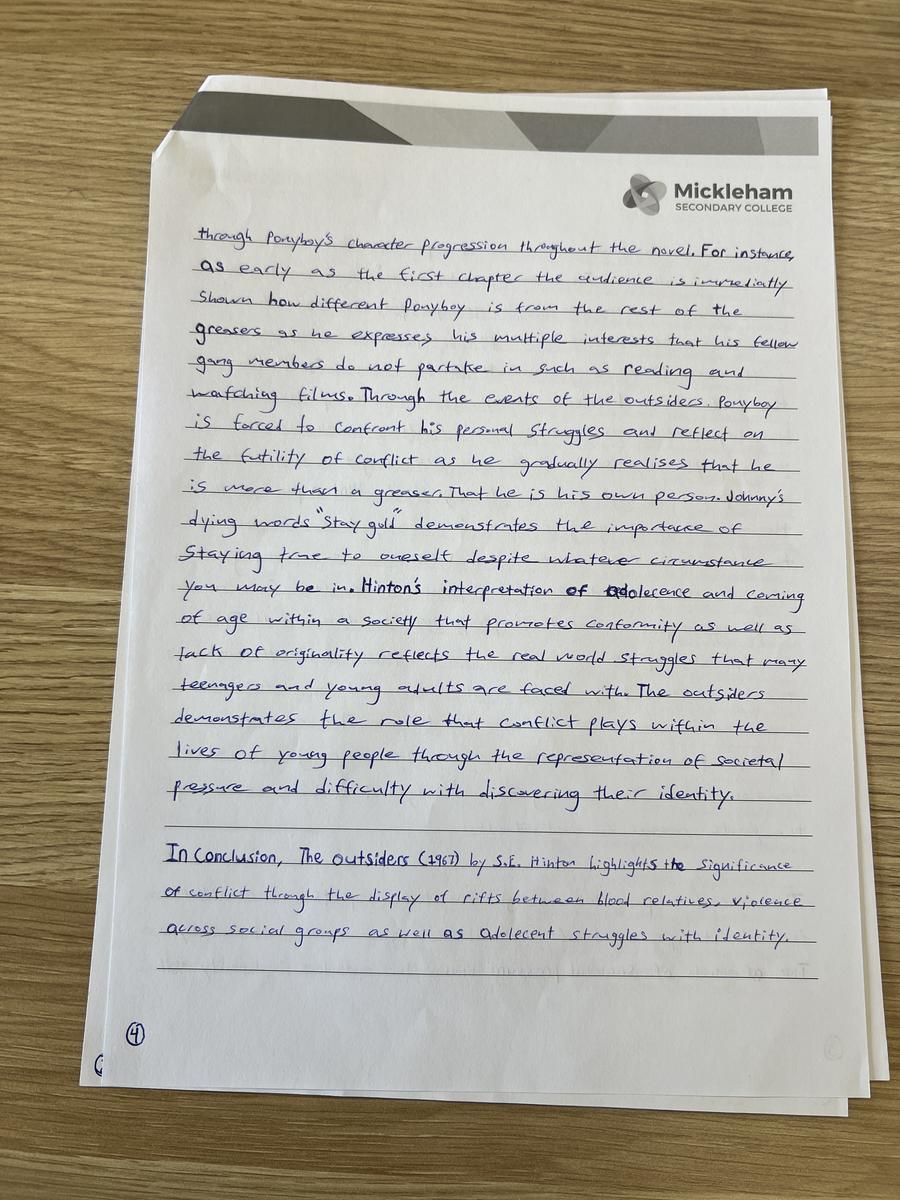 Mickleham
SECONDARY COLLEGE
through Ponyboy's character progression throughout the novel. For instance,
as early as the first chapter the audience is immediatly
shown how different Ponyboy is from the rest of the
greasers as he expresses his multiple interests that his fellow
gang members do not partake in such as reading and
watching films. Through the events of the outsiders. Ponyboy
is forced to confront his personal struggles and reflect on
the futility of conflict as he gradually realises that he
is more than a greaser. That he is his own person. Johnny's
dying words "Stay gold" demonstrates the importance of
Staying true to oneself despite whatever circumstance
you may be in. Hinton's interpretation of adolecence and coming
of age within a society that promotes conformity as well as
lack of originality reflects the real world struggles that many
teenagers and young adults are faced with. The outsiders
demonstrates the role that conflict plays within the
lives of young people through the representation of societal
pressure and difficulty with discovering their identity.
In Conclusion, The outsiders (1967) by S.E. Hinton highlights the significance
of conflict through the display of rifts between blood relatives, violence
across social groups as well as adolecent struggles with identity.
4